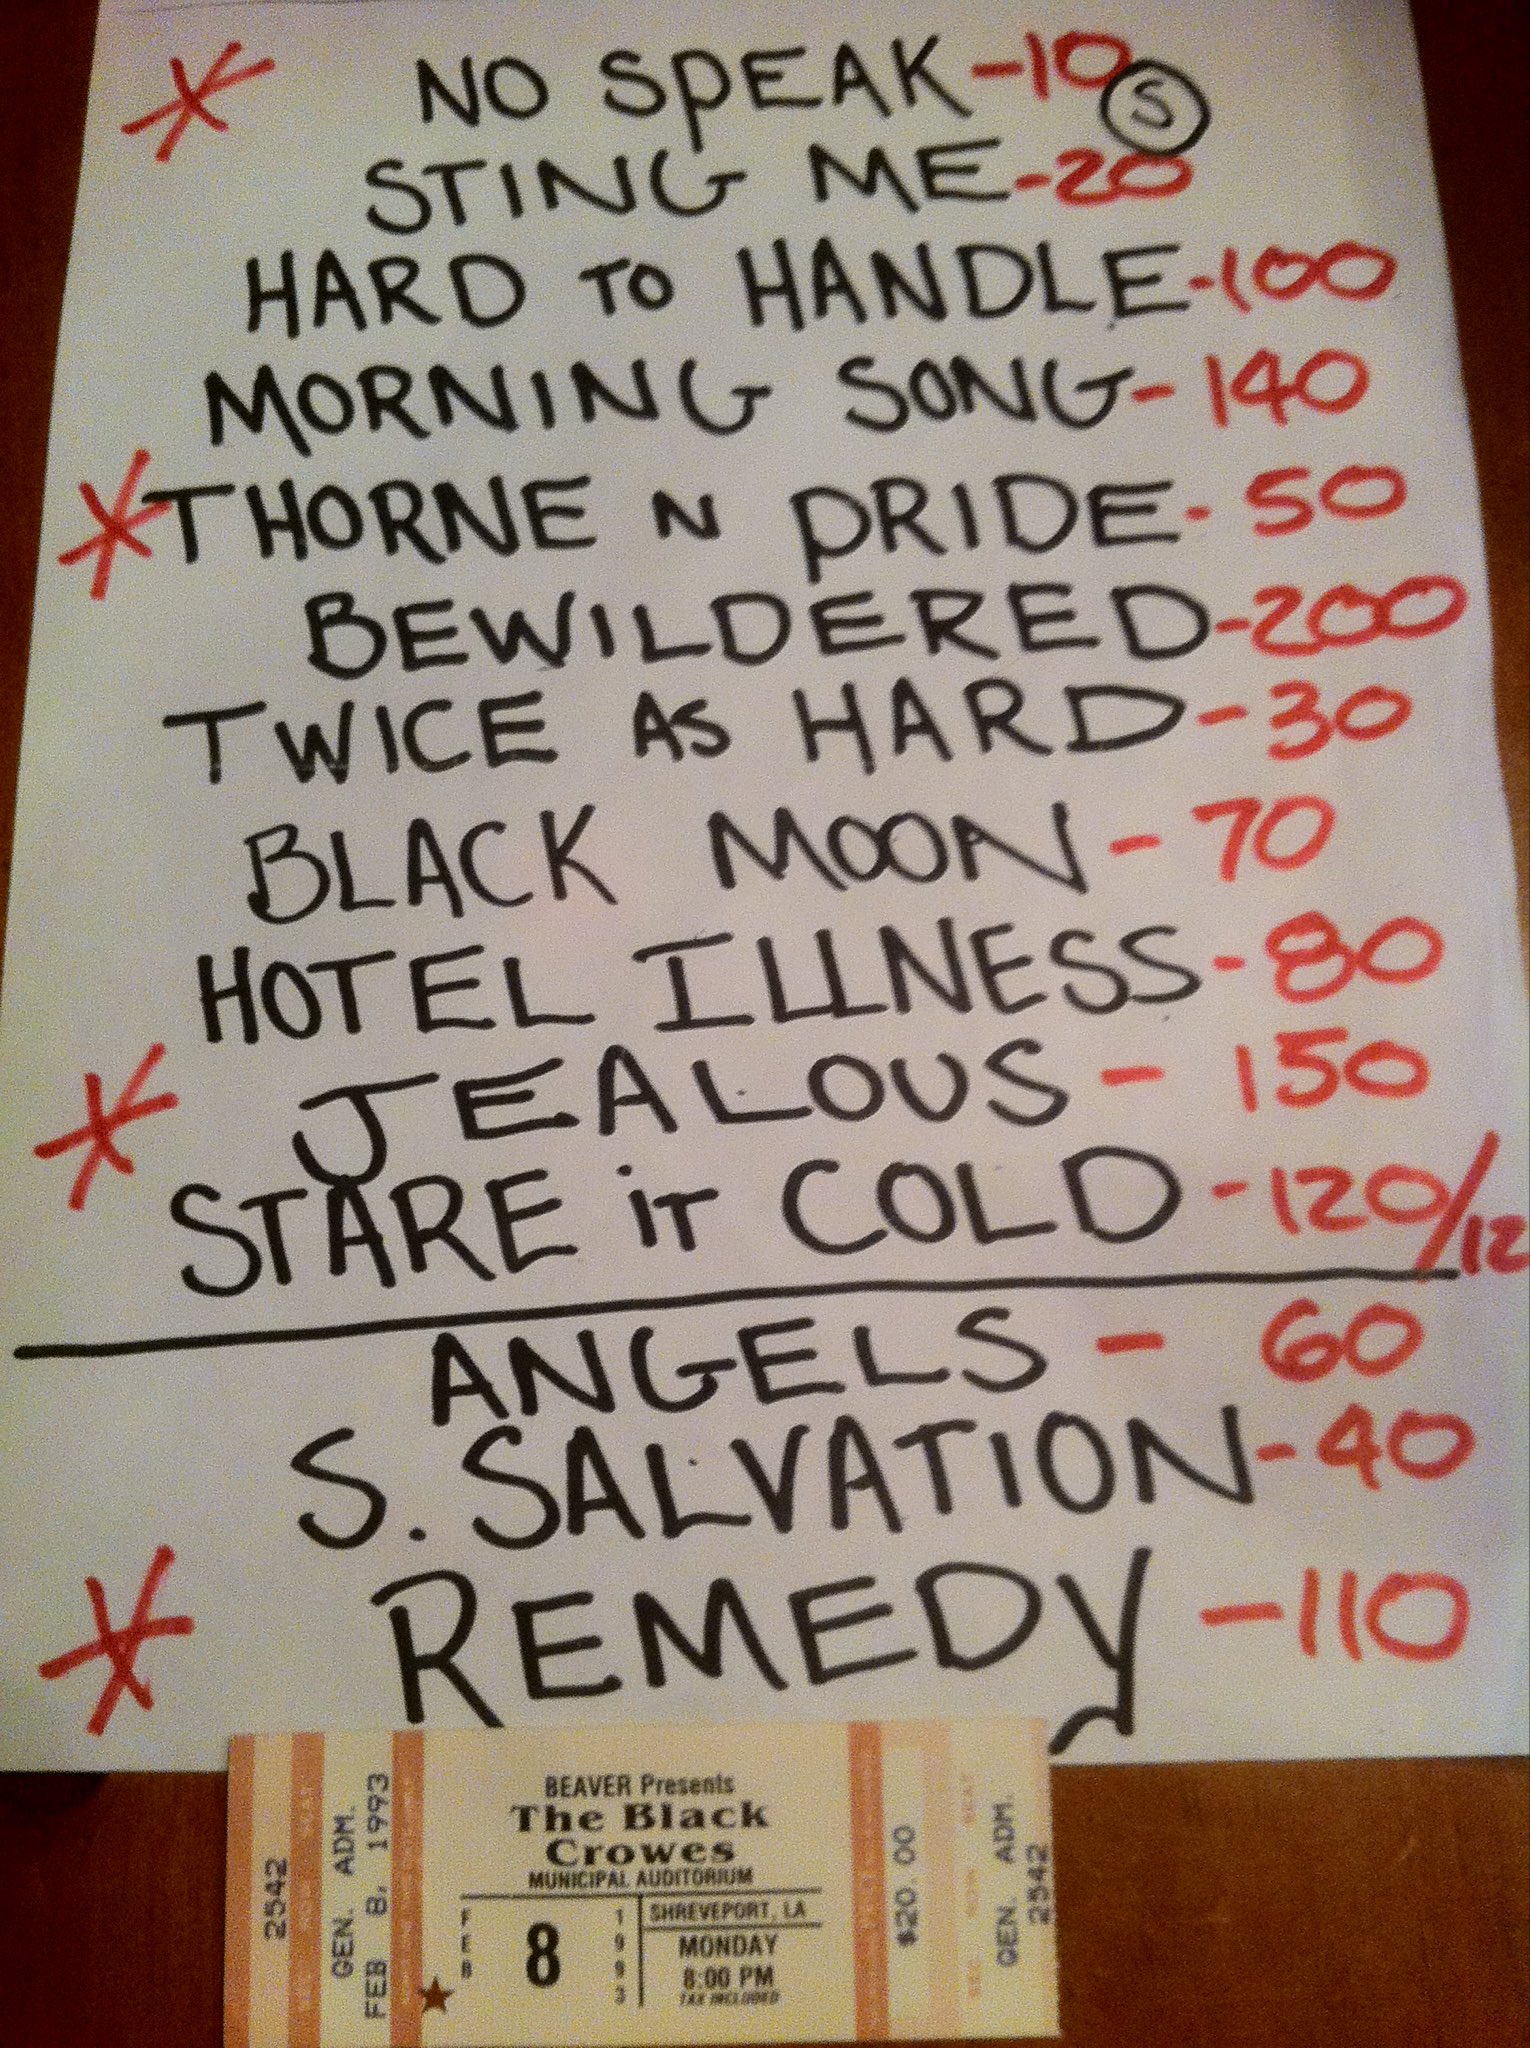 NO SPEAK -10 S
STING ME -20
HARD TO HANDLE -100
MORNING SONG - 140
THORNE N PRIDE - 50
BEWILDERED -200
TWICE AS HARD - 30
BLACK MOON - 70
HOTEL ILLNESS - 80
JEALOUS - 150
STARE iT COLD - 120/12
ANGELS - 60
S. SALVATION - 40
REMEDY - 110
2542
GEN. ADM.
FEB 8, 1993
BEAVER Presents
The Black
Crowes
MUNICIPAL AUDITORIUM
FEB 8 1993
SHREVEPORT, LA
MONDAY
8:00 PM
TAX INCLUDED
$20.00
GEN. ADM.
2542